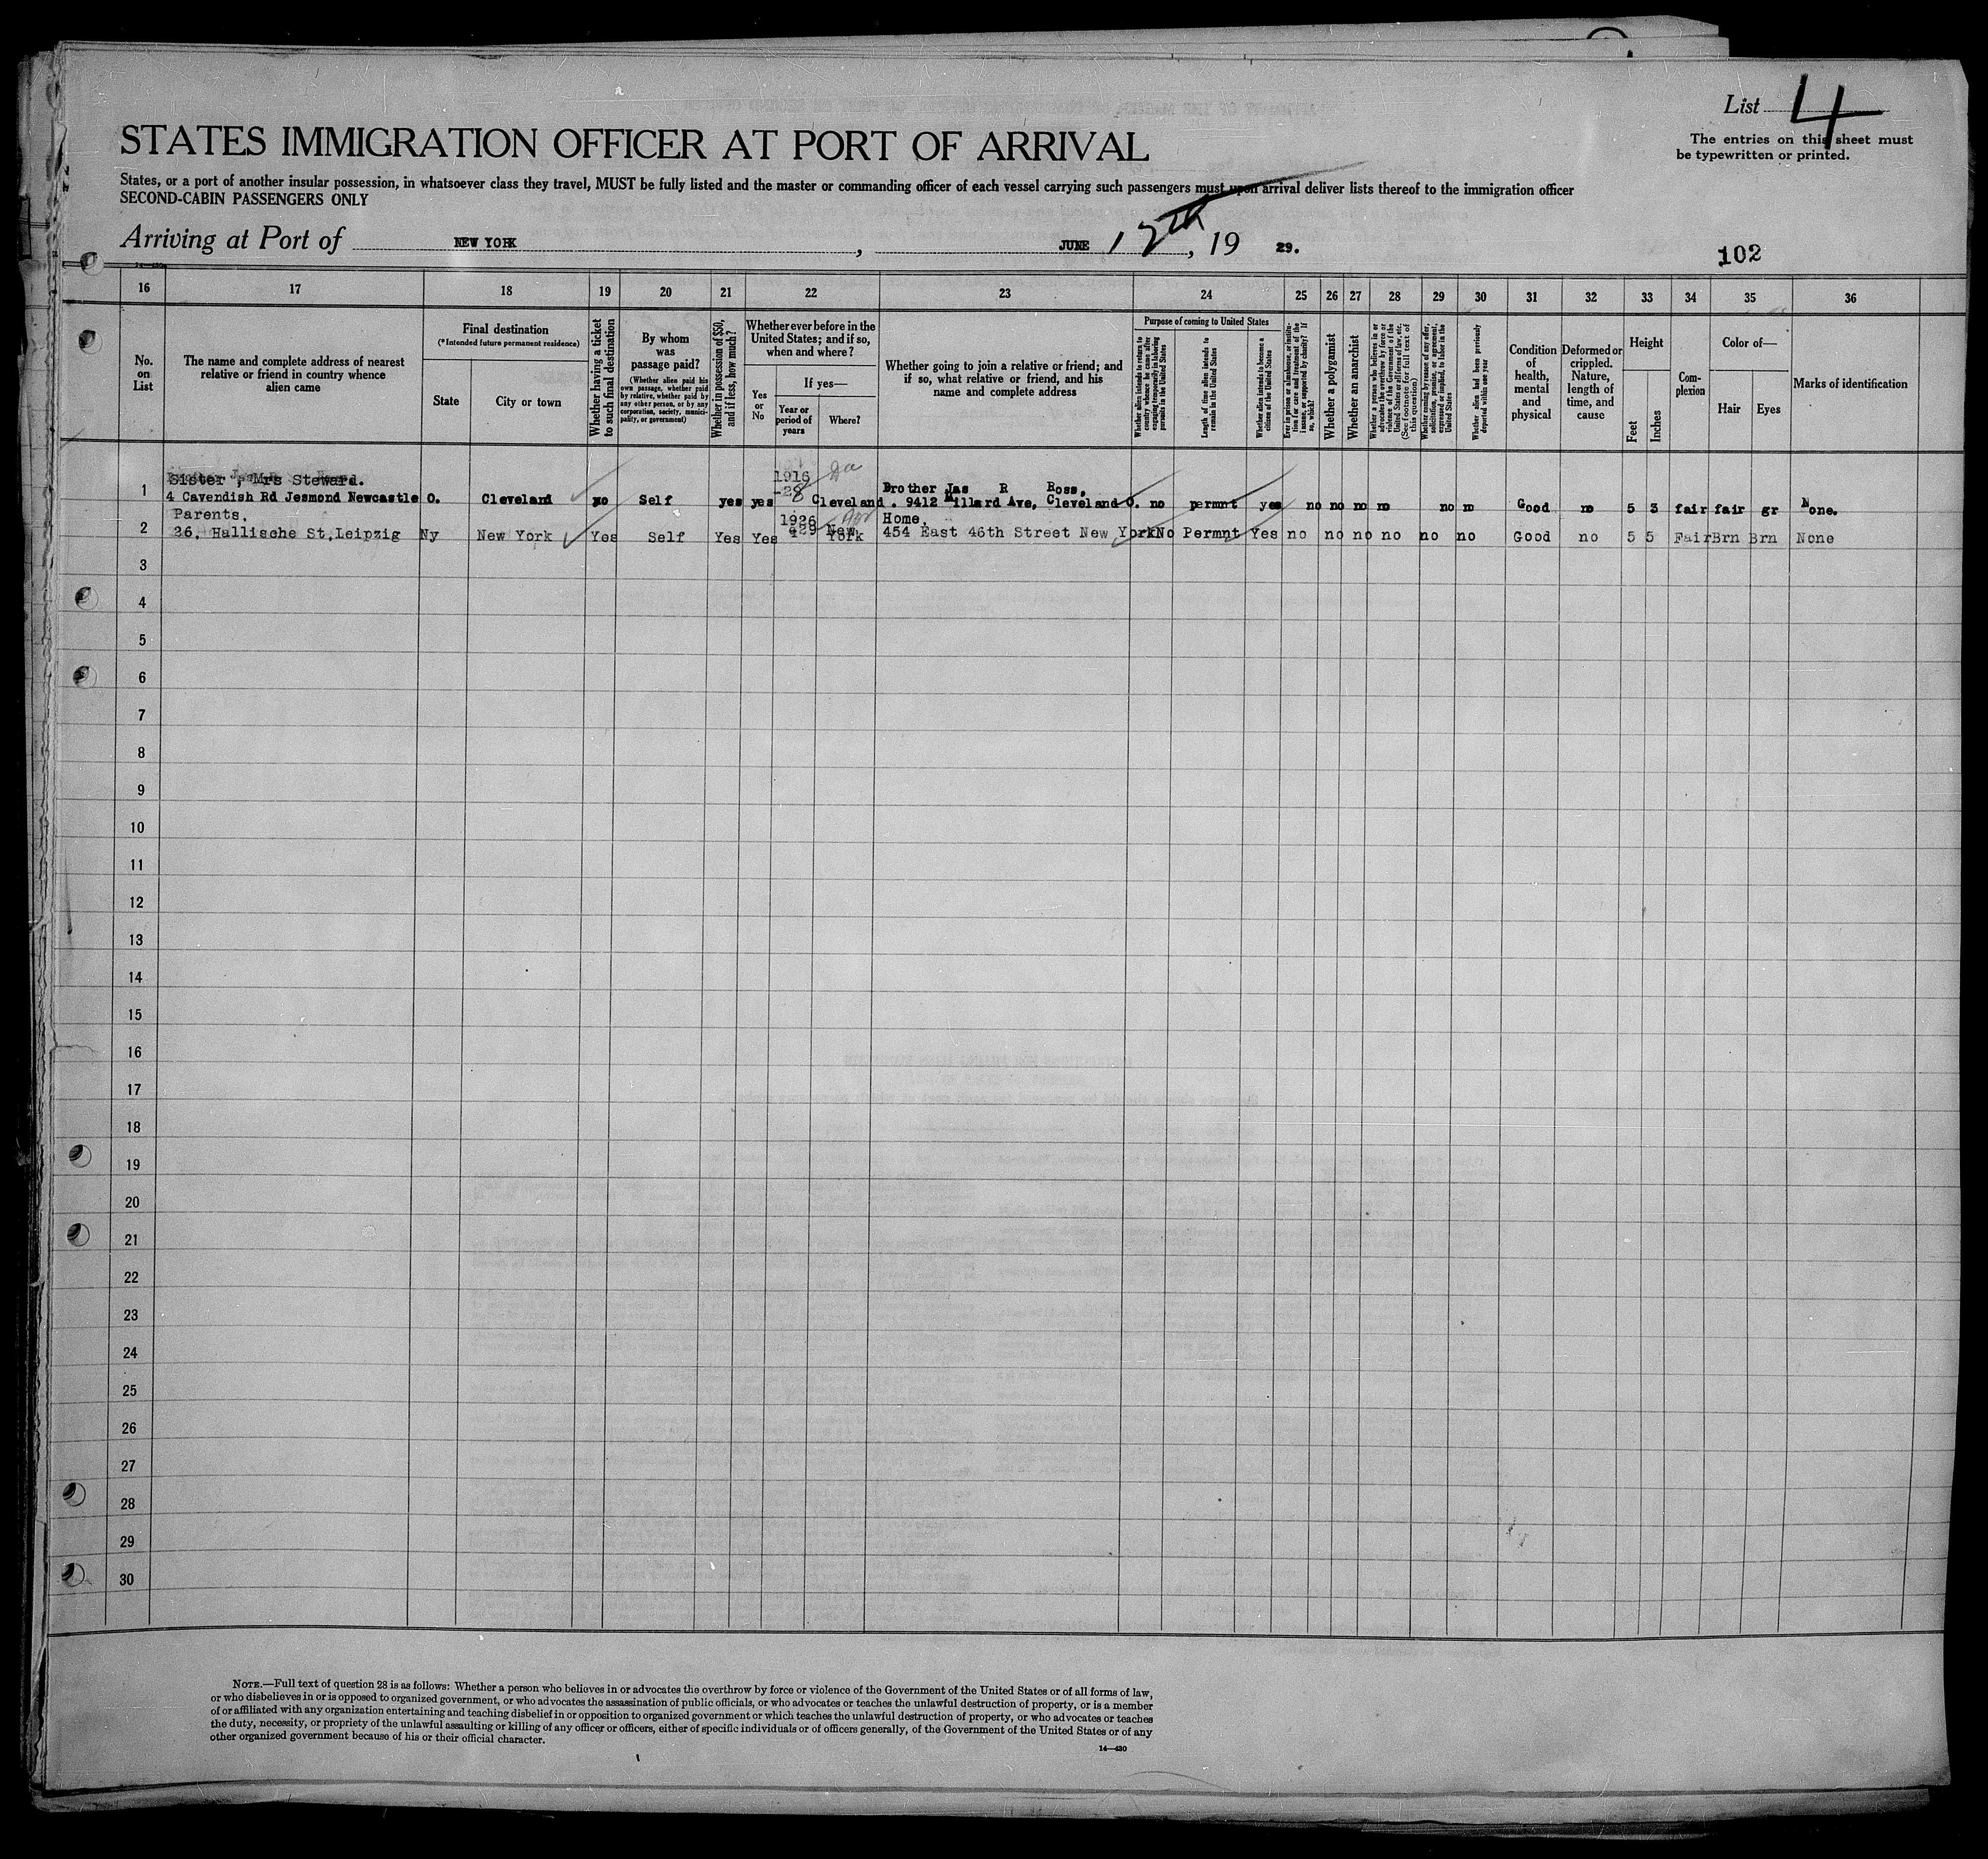 List 4
The entries on this sheet must
be typewritten or printed.
STATES IMMIGRATION OFFICER AT PORT OF ARRIVAL
States, or a port of another insular possession, in whatsoever class they travel, MUST be fully listed and the master or commanding officer of each vessel carrying such passengers must upon arrival deliver lists thereof to the immigration officer
SECOND-CABIN PASSENGERS ONLY
Arriving at Port of NEW YORK, JUNE 12th, 19 29.
102
16 17 18 19 20 21 22 23 24 25 26 27 28 29 30 31 32 33 34 35 36
No.
on
List
The name and complete address of nearest
relative or friend in country whence
alien came
Final destination
(*Intended future permanent residence)
State
City or town
Whether having a ticket
to such final destination
By whom
was
passage paid?
(Whether alien paid his
own passage, whether paid
by relative, whether paid by
any other person, or by any
corporation, society, munici-
pality, or government)
Whether in possession of $50,
and if less, how much?
Whether ever before in the
United States; and if so,
when and where?
Yes
or
No
If yes—
Year or
period of
years
Where?
Whether going to join a relative or friend; and
if so, what relative or friend, and his
name and complete address
Purpose of coming to United States
Whether alien intends to return to
country whence he came after
engaging temporarily in laboring
pursuits in the United States
Length of time alien intends to
remain in the United States
Whether alien intends to become a
citizen of the United States
Ever in prison or almshouse, or institu-
tion for care and treatment of the
insane, or supported by charity? If
so, which?
Whether a polygamist
Whether an anarchist
Whether a person who believes in or
advocates the overthrow by force or
violence of the Government of the
United States or all forms of law, etc.
(See footnote for full text of
this question)
Whether coming by reason of any offer,
solicitation, promise, or agreement,
expressed or implied, to labor in the
United States
Whether alien had been previously
deported within one year
Condition
of
health,
mental
and
physical
Deformed or
crippled.
Nature,
length of
time, and
cause
Height
Feet
Inches
Com-
plexion
Color of—
Hair
Eyes
Marks of identification
Sister, Mrs Steward. 1916 Brother Jas R Ross,
1 4 Cavendish Rd Jesmond Newcastle O. Cleveland no Self yes yes -28 Cleveland. 9412 Millard Ave, Cleveland O. no permnt yes no no no no no no Good no 5 3 fair fair gr None.
Parents. 1926 New Home,
2 26, Hallische St, Leipzig Ny New York Yes Self Yes Yes 29 York 454 East 46th Street New York No Permnt Yes no no no no no no Good no 5 5 Fair Brn Brn None
3
4
5
6
7
8
9
10
11
12
13
14
15
16
17
18
19
20
21
22
23
24
25
26
27
28
29
30
NOTE.—Full text of question 28 is as follows: Whether a person who believes in or advocates the overthrow by force or violence of the Government of the United States or of all forms of law,
or who disbelieves in or is opposed to organized government, or who advocates the assassination of public officials, or who advocates or teaches the unlawful destruction of property, or is a member
of or affiliated with any organization entertaining and teaching disbelief in or opposition to organized government or which teaches the unlawful destruction of property, or who advocates or teaches
the duty, necessity, or propriety of the unlawful assaulting or killing of any officer or officers, either of specific individuals or of officers generally, of the Government of the United States or of any
other organized government because of his or their official character.
14—430